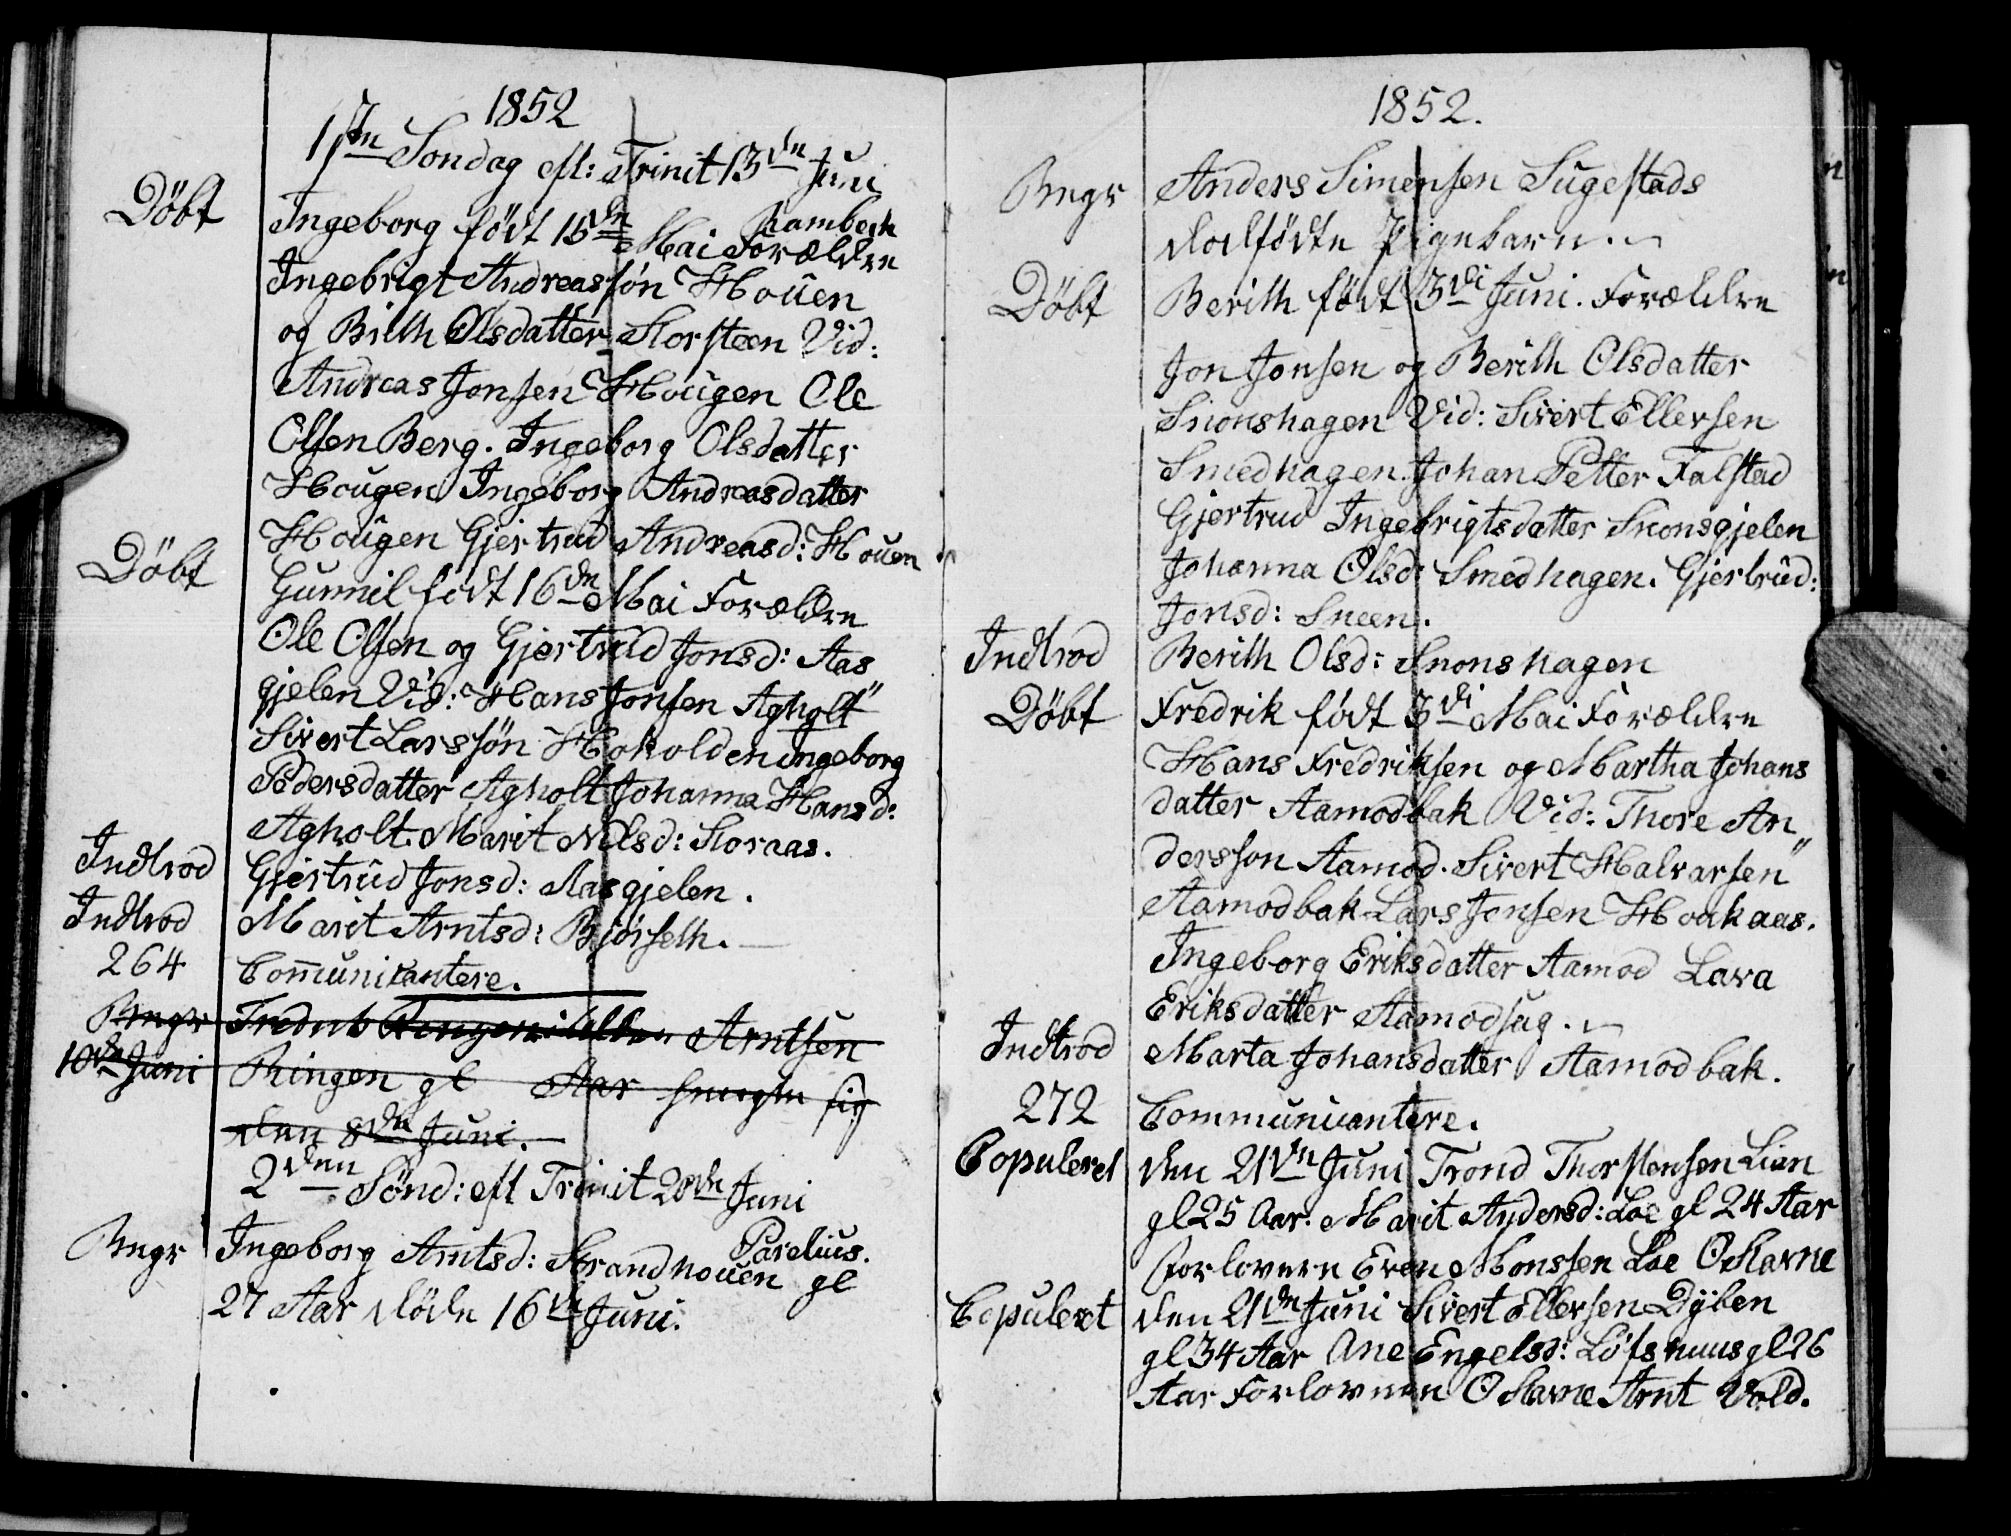 1852
1ste Søndag eft: Trinit 13de Juni
Rambech
Döbt Ingeborg födt 15de Mai Forældre
Ingebrigt Andreassøn Houen
og Brith Olsdatter Storsteen Vid:
Andreas Jonsen Hougen Ole
Olsen Berg. Ingeborg Olsdatter
Hougen Ingeborg Andreasdatter
Hougen Gjertrud Andreasd: Houen
Döbt Gunnil födt 16de Mai Forældre
Ole Olsen og Gjertrud Jonsd: Aas
gjelen Vid: Hans Jonsen Agholt
Sivert Larssøn Hokolden Ingeborg
Pedersdatter Agholt Johanna Hansd:
Agholt Marit Nilsd: Storaas.
Indtrod Gjertrud Jonsd: Aasgjelen.
Indtrod Marit Arntsd: Bjørseth.
264 Communicantere.
Begr Arntsen
10de Juni Ringen gl Aar sig
den 8de Juni.
2den Sönd: eft Trinit 20de Juni
Parelius.
Begr Ingeborg Arntsd: Strandhouen gl
27 Aar döde 16de Juni.
1852.
Begr Anders Simensen Sugestads
dødfödte Pigebarn.
Döbt Berith födt 3di Juni. Forældre
Jon Jonsen og Berith Olsdatter
Snonshagen Vid: Sivert Ellersen
Smedhagen. Johan Petter Falstad
Gjertrud Ingebrigtsdatter Snonsgjelen
Johanna Olsd: Smedhagen. Gjertrud:
Jonsd: Sneen.
Indtrod Berith Olsd: Snonshagen
Döbt Fredrik födt 3di Mai Forældre
Hans Fredriksen og Martha Johans
datter Aamodbak Vid: Thore An"
dersson Aamod. Sivert Halvarsen
Aamodbak Lars Jonsen Hoakaas.
Ingeborg Eriksdatter Aamod Lava
Eriksdatter Aamodsag.
Indtrod Marta Johansdatter Aamodbak.
272 Communicantere.
Copuleret den 21de Juni Trond Thorstensen Lian
gl 25 Aar. Marit Andersd: Loe gl 24 Aar
Forlovere Even Monssen Loe O Skarne
Copulert den 21de Juni Sivert Ellersen Dyben
gl 34 Aar Ane Engelsd: Löfshuus gl 26
Aar Forlovere O Skarne Arnt Vold.